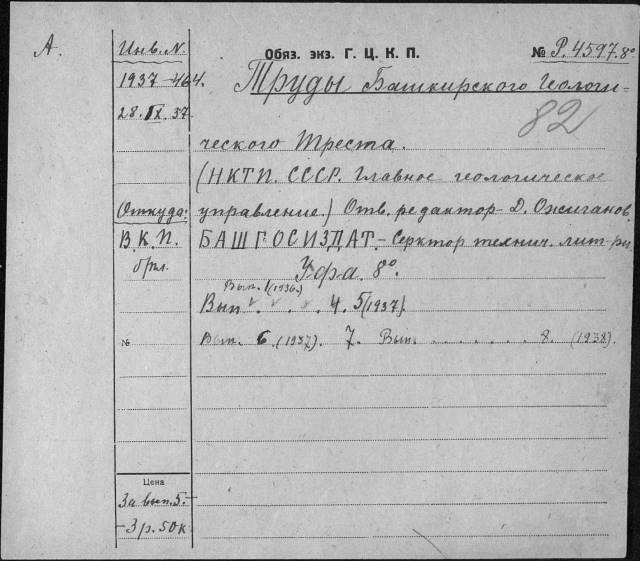 А.
Инв. N.
Обяз. экз. Г. Ц. К. П.
№ Р. 4597.8°
1937-464.
Труды Башкирского Геологи-
28. IX. 37
82
ческого Треста.
(НКТП. СССР. Главное геологическое
Откуда:
управление.) Отв. редактор - Д. Ожиганов.
В. К. П.
БАШГОСИЗДАТ. - Серктор технич. лит-ры
Уфа. 8°.
Вып. 1 (1936.)
Вып . . . 4. 5 (1937).
№
Вып. 6. (1937). 7. Вып. . . . . . . . 8. (1938).
Цена
За вып. 5.-
-3 р. 50 к.